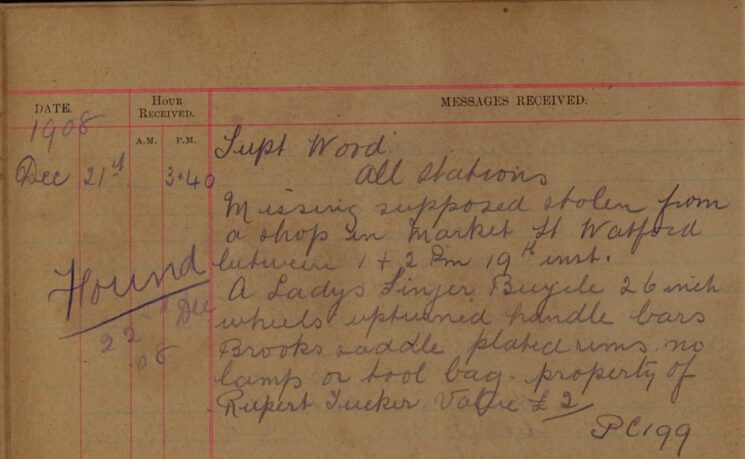 DATE. HOUR RECEIVED. MESSAGES RECEIVED.
A.M. P.M.
1908
Dec 21st 3.40
Supt Wood.
All Stations
Missing supposed stolen from
a shop in Market St Watford
between 1 + 2 Pm 19th inst.
A Ladys Singer Bicycle 26 inch
wheels upturned handle bars
Brooks saddle plated rims no
lamps or tool bag. property of
Rupert Tucker Value £2
PC199
Found
22nd Dec
08